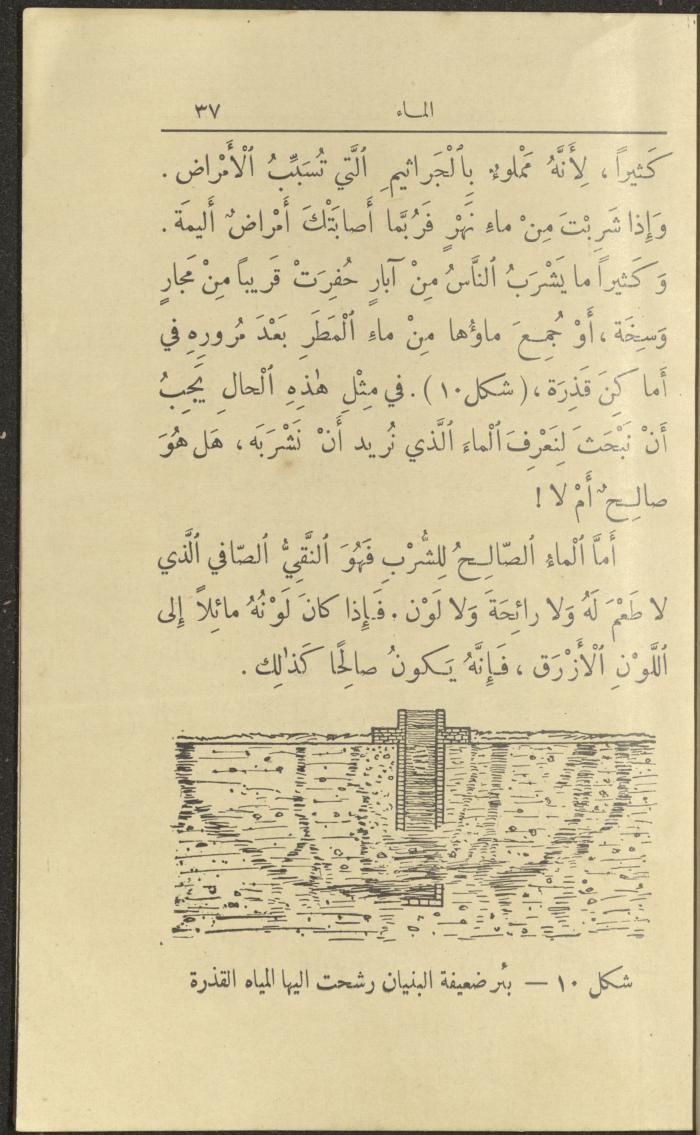 الماء ٣٧
كَثيراً ، لِأَنَّهُ مَمْلوءٌ بِٱلْجَراثيمِ ٱلَّتي تُسَبِّبُ ٱلْأَمْراض .
وَإِذا شَرِبْتَ مِنْ ماءِ نَهْرٍ فَرُبَّما أَصابَتْكَ أَمْراضٌ أَليمَة .
وَكَثيراً ما يَشْرَبُ ٱلنَّاسُ مِنْ آبارٍ حُفِرَتْ قَريباً مِنْ مَجارٍ
وَسِخَة ، أَوْ جُمِعَ ماؤُها مِنْ ماءِ ٱلْمَطَرِ بَعْدَ مُرورِهِ في
أَماكِنَ قَذِرَة ، ( شكل ١٠ ) . في مِثْلِ هٰذِهِ ٱلْحالِ يَجِبُ
أَنْ نَبْحَثَ لِنَعْرِفَ ٱلْماءَ ٱلَّذي نُريد أَنْ نَشْرَبَه ، هَل هُوَ
صالِحٌ أَمْ لا !
أَمَّا ٱلْماءُ ٱلصّالِحُ لِلشُّرْبِ فَهُوَ ٱلنَّقِيُّ ٱلصّافي ٱلَّذي
لا طَعْمَ لَهُ وَلا رائِحَةَ وَلا لَوْن . فَإِذا كانَ لَوْنُهُ مائِلاً إِلى
ٱللَّوْنِ ٱلْأَزْرَق ، فَإِنَّهُ يَكونُ صالِحًا كَذٰلِك .
شكل ١٠ — بئر ضعيفة البنيان رشحت اليها المياه القذرة